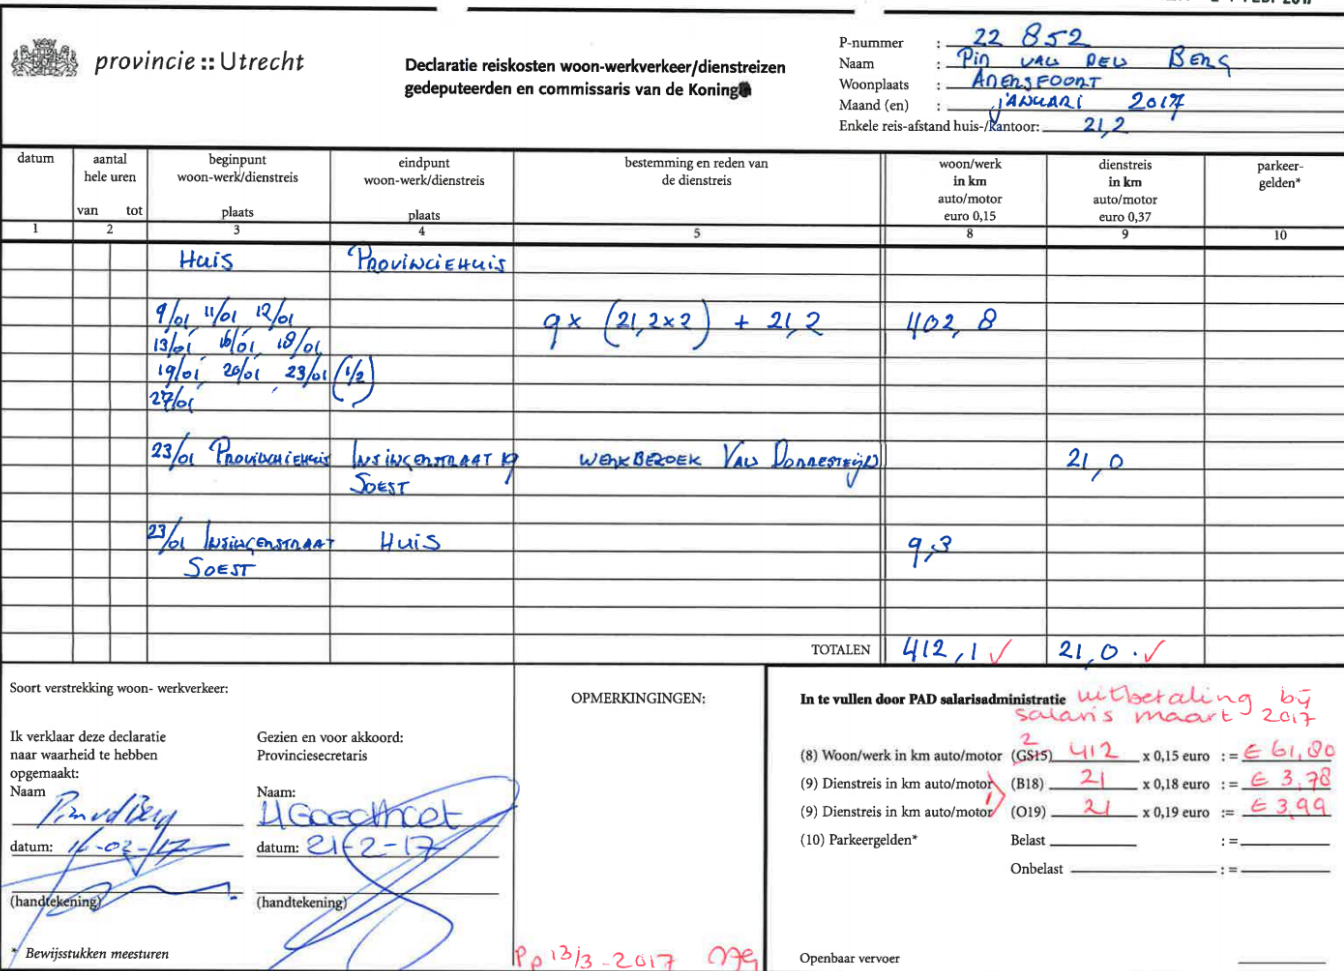 provincie :: Utrecht
Declaratie reiskosten woon-werkverkeer/dienstreizen
gedeputeerden en commissaris van de Koning
P-nummer : 22 852
Naam : Pim van den Berg
Woonplaats : Amersfoort
Maand (en) : januari 2017
Enkele reis-afstand huis-/kantoor: 21,2
datum aantal hele uren van tot beginpunt woon-werk/dienstreis plaats eindpunt woon-werk/dienstreis plaats bestemming en reden van de dienstreis woon/werk in km auto/motor euro 0,15 dienstreis in km auto/motor euro 0,37 parkeer-gelden*
1 2 3 4 5 8 9 10
Huis Provinciehuis
9/01 11/01 12/01 9x (21,2x2) + 21,2 402,8
13/01 16/01 18/01
19/01 20/01 23/01 (1/2)
27/01
23/01 Provinciehuis Insingerstraat 19 werkbezoek Van Dorresteijn 21,0
Soest
23/01 Insingerstraat Huis 9,3
Soest
TOTALEN 412,1 ✓ 21,0 . ✓
Soort verstrekking woon- werkverkeer:
Ik verklaar deze declaratie
naar waarheid te hebben
opgemaakt:
Naam
Pim vd Berg
datum: 16-02-17
(handtekening)
* Bewijsstukken meesturen
Gezien en voor akkoord:
Provinciesecretaris
Naam:
datum: 21-2-17
(handtekening)
OPMERKINGINGEN:
Pp 13/3-2017
In te vullen door PAD salarisadministratie uitbetaling bij
salaris maart 2017
2
(8) Woon/werk in km auto/motor (GS15) 412 x 0,15 euro := € 61,80
(9) Dienstreis in km auto/motor (B18) 21 x 0,18 euro := € 3,78
(9) Dienstreis in km auto/motor (O19) 21 x 0,19 euro := € 3,99
(10) Parkeergelden* Belast : =
Onbelast : =
Openbaar vervoer